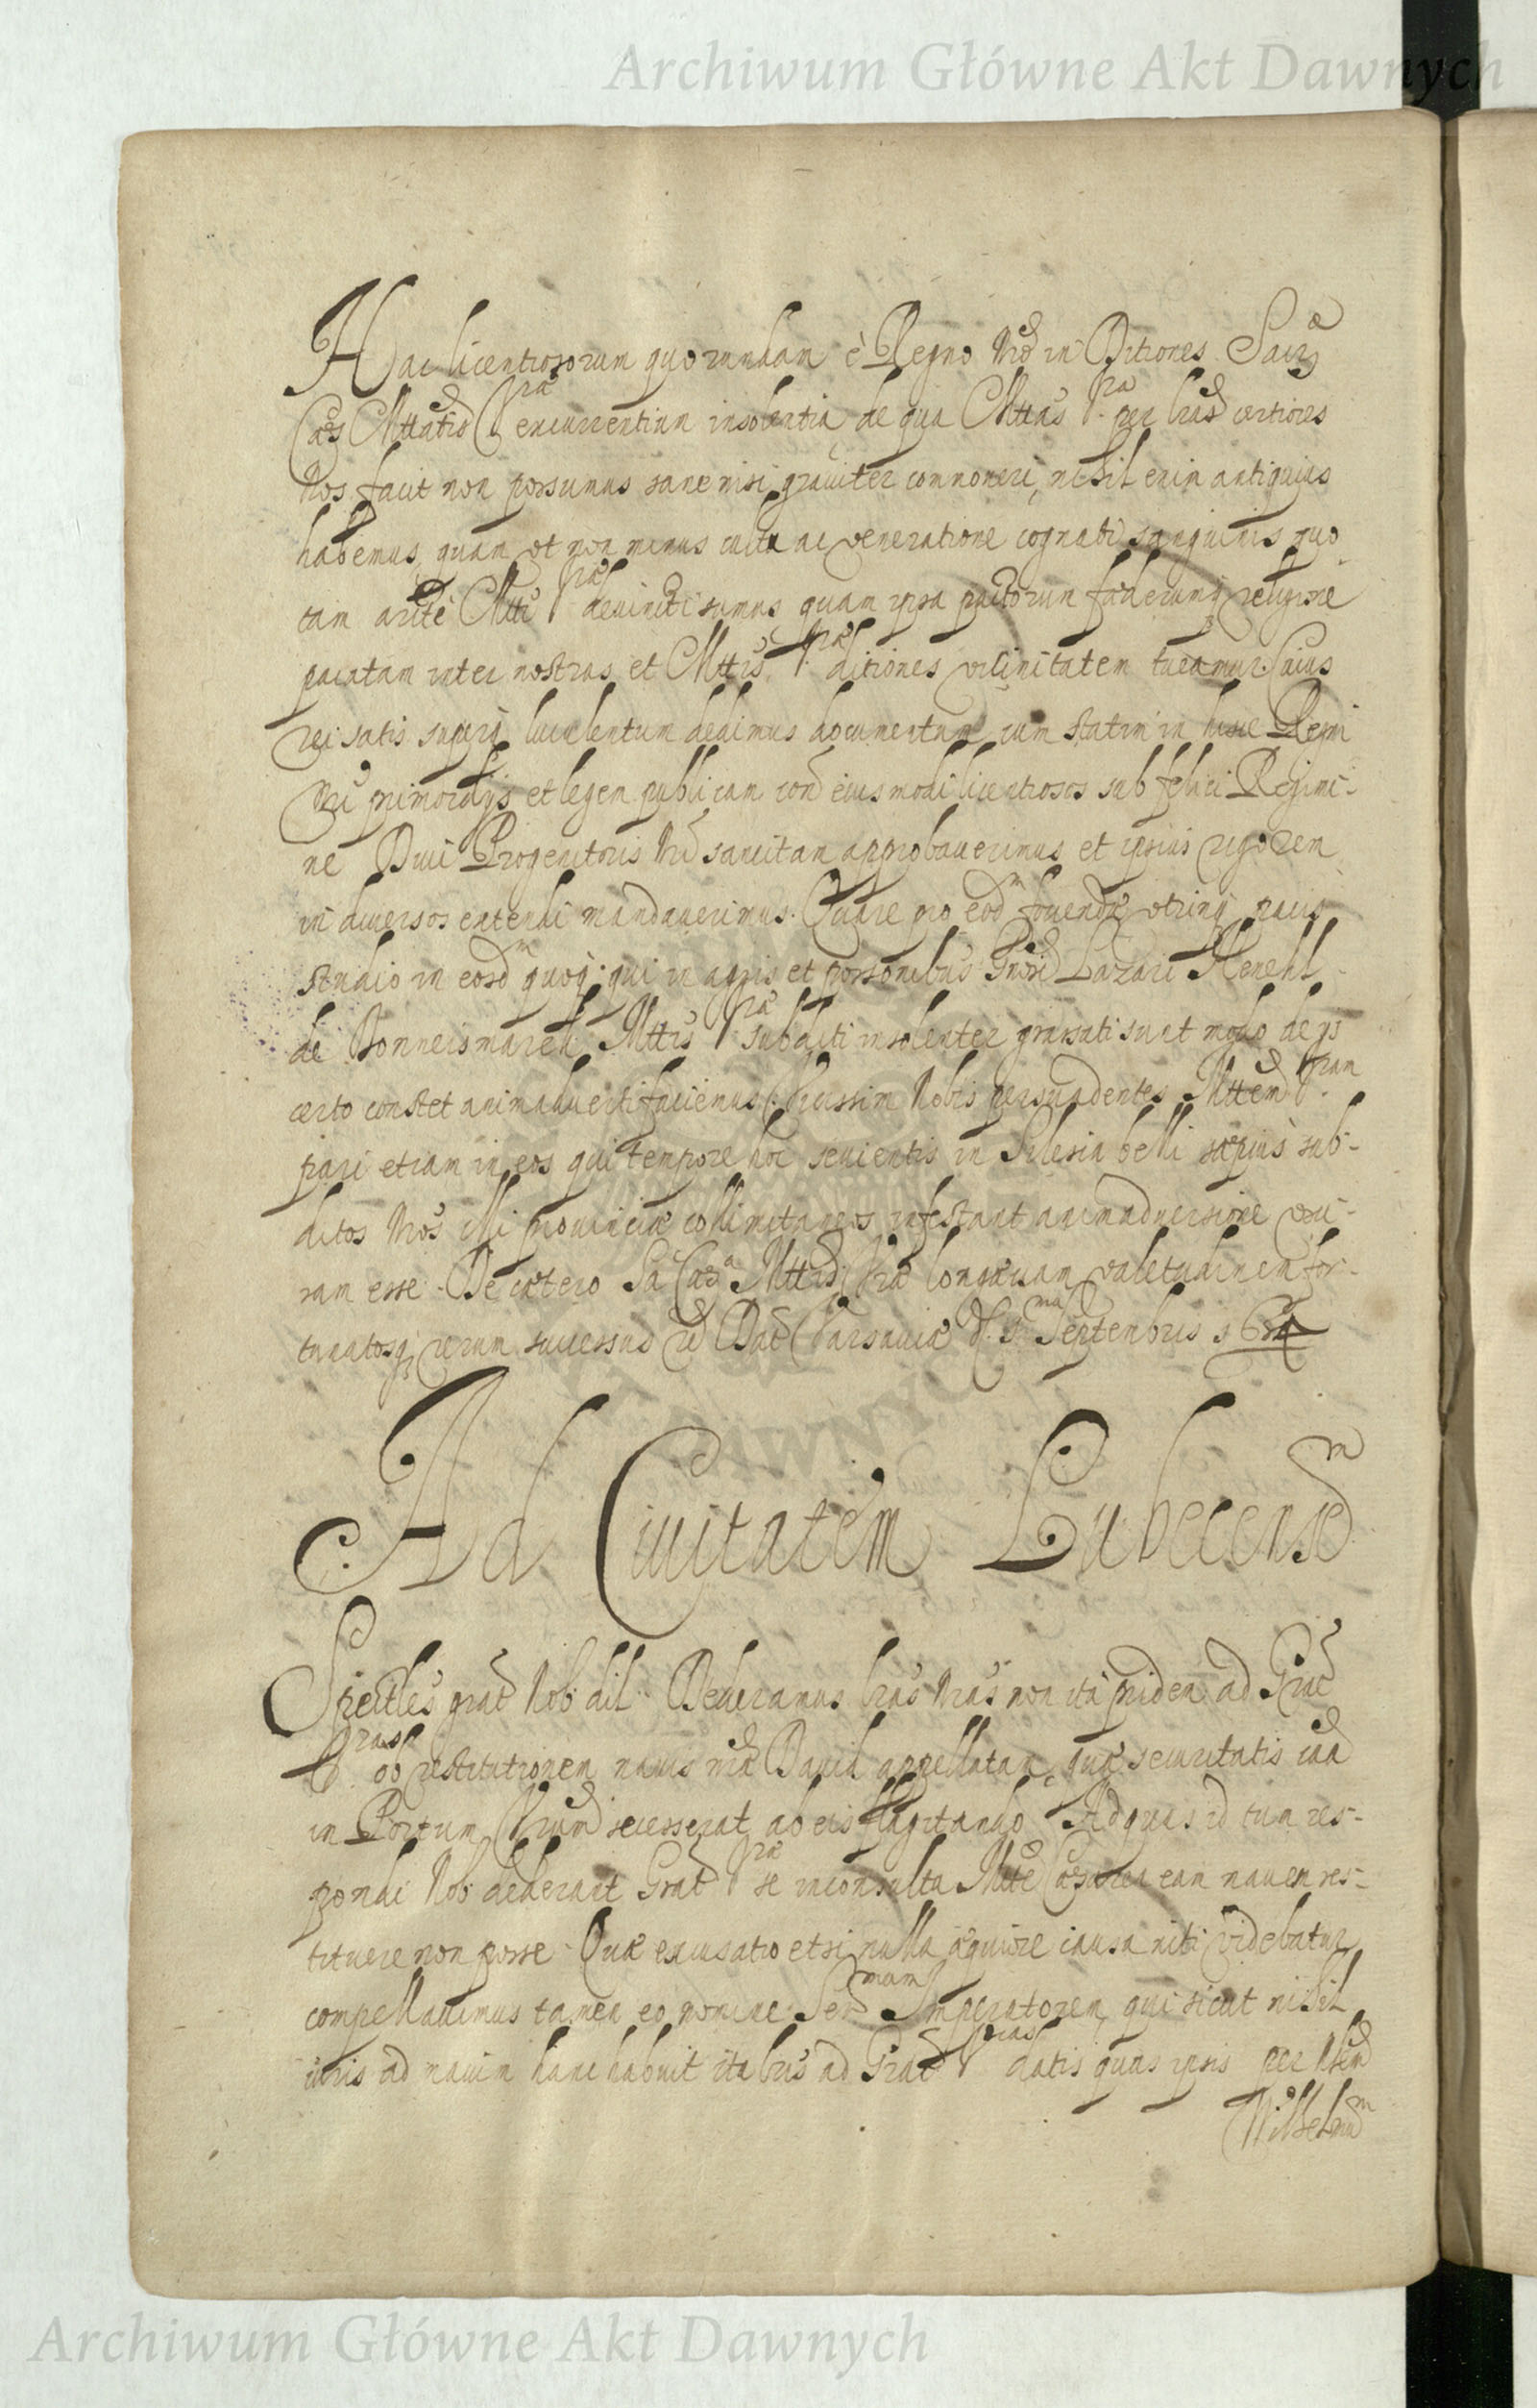 Archiwum Główne Akt Dawnych
Hac licentiosorum quorundam è Regno Nro in Ditiones Sacræ
Caes Mttatis Vra excurrentium insolentia, de qua Mttas Vra per lras certiores
Nos facit non possumus sane nisi graviter commoneri, nihil enim antiquius
habemus, quam ut non minus cultu ac veneratione cognati sanguinis quo
tam arctè Mtti Vræ devincti sumus, quam ipsa pactorum fæderumq religione
pacatam inter nostras et Mttis Vræ ditiones vicinitatem tueamur. Cuius
rei satis superq luculentum dedimus documentum, cum statim in hisce Regni
Nri primordijs et legem publicam con eiusmodi licentiosos sub felici Regimi-
ne Divi Progenitoris Nri sancitam approbaverimus et ipsius rigorem
in diversos extendi mandaverimus. Quare pro eodm fovendæ utrinq pacis
studio in eosdm quoq: qui in agris et possonibus Gnosi Lazari
de Mttis Vræ subditi insolenter grassati sunt modo de ijs
certo constet animadverti faciemus. Vicissim Nobis persuadentes Mttem Vram
pari etiam in eos qui tempore hoc sevientis in Silesia belli sæpius sub-
ditos Nros illi provinciæ collimitaneos infestant animadversione usu-
ram esse. De cætero Sa Caea Mttis Vræ longævam valetudinem for-
tunatosq rerum successus Dat Varsaviæ d. Septembris
Ad Civitatem Lubecensem
Spectles grat Nob dil. Dederamus lras Nras non ita pridem ad Grat
Vras ob restitutionem navis David appellatam, quæ securitatis cau
in Portum Vrum secesserat ab eis flagitando. Ad quas id tum res-
pondi Nob dederant Grat Vræ se inconsulta Mtte Cæsarea eam navem res-
tituere non posse. Quæ excusatio etsi nulla æquiore causa niti videbatur
compellavimus tamen eo nomine Sermam Imperatorem, qui sicut nihil
iuris ad navim hanc habuit ita lris ad Grat Vras datis quas ipsis per
Wilhelmum
Archiwum Główne Akt Dawnych